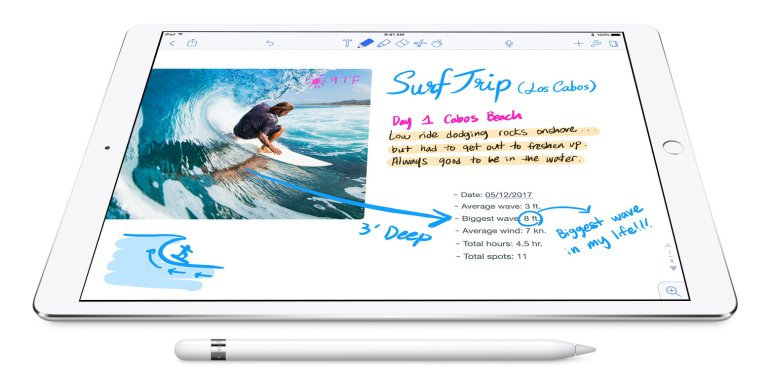 iPad
9:41 AM
100%
T
97°F
Surf Trip (Los Cabos)
Day 1 Cabos Beach
Low ride dodging rocks onshore...
but had to get out to freshen up.
Always good to be in the water.
- Date: 05/12/2017
- Average wave: 3 ft.
- Biggest wave: 8 ft.
- Average wind: 7 kn.
- Total hours: 4.5 hr.
- Total spots: 11
3' Deep
Biggest wave
in my life!!!.